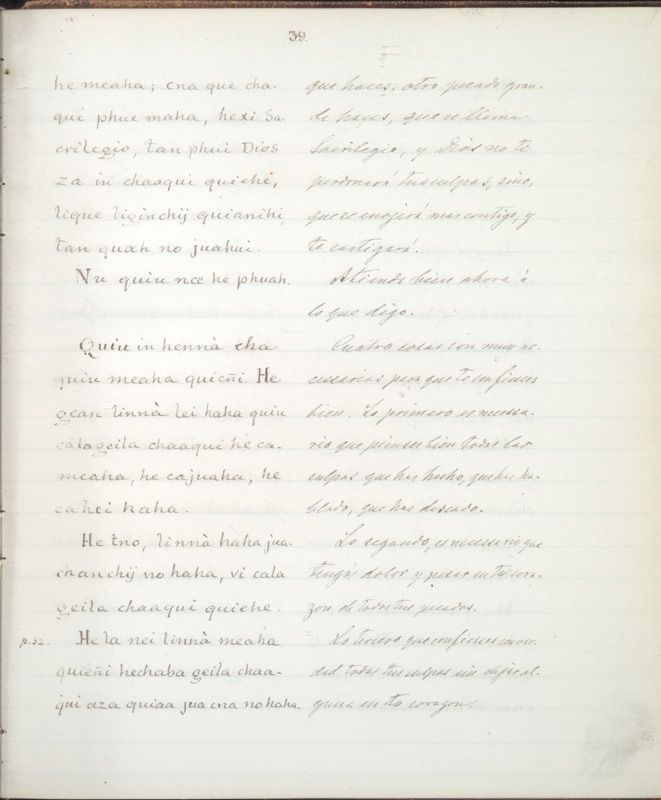 39.
he meaha; cna que cha-
qui phue maha, hexi Sa
crilegio, tan phui Dios
za in chaaqui quiche,
lique liginchij quianihi,
tan quæh no juahui.
Nu quiu nce he phuah.
Quiu in hennà cha
quiu meaha quieñi. He
gean linnà lei haha quiu
cala geila chaaqui he ca-
meaha, he cajuaha, he
ca hei haha.
He tno, linnà haha jua-
chanchij no haha, vi cala
geila chaaqui quiche.
p. 32. He la nei linnà meaha
quieñi hechaba geila chaa-
qui aza quiaa jua cna no haha.
que haces; otro pecado gran-
de haces, que se llama
Sacrilegio, y Dios no te
perdonará tus culpas, sino,
que se enojará mas contigo, y
te castigará.
Atiende bien ahora á
lo que digo.
Cuatro cosas son muy ne-
cesarias para que te confieses
bien. Lo primero es necesa-
rio que pienses bien todas las
culpas que has hecho, que has ha-
blado, que has deseado.
Lo segundo, es necesario que
tengas dolor y pesar en tu cora-
zon de todos tus pecados.
Lo tercero que confieses con ver-
dad todas tus culpas sin dejar al-
guna en tu corazon.